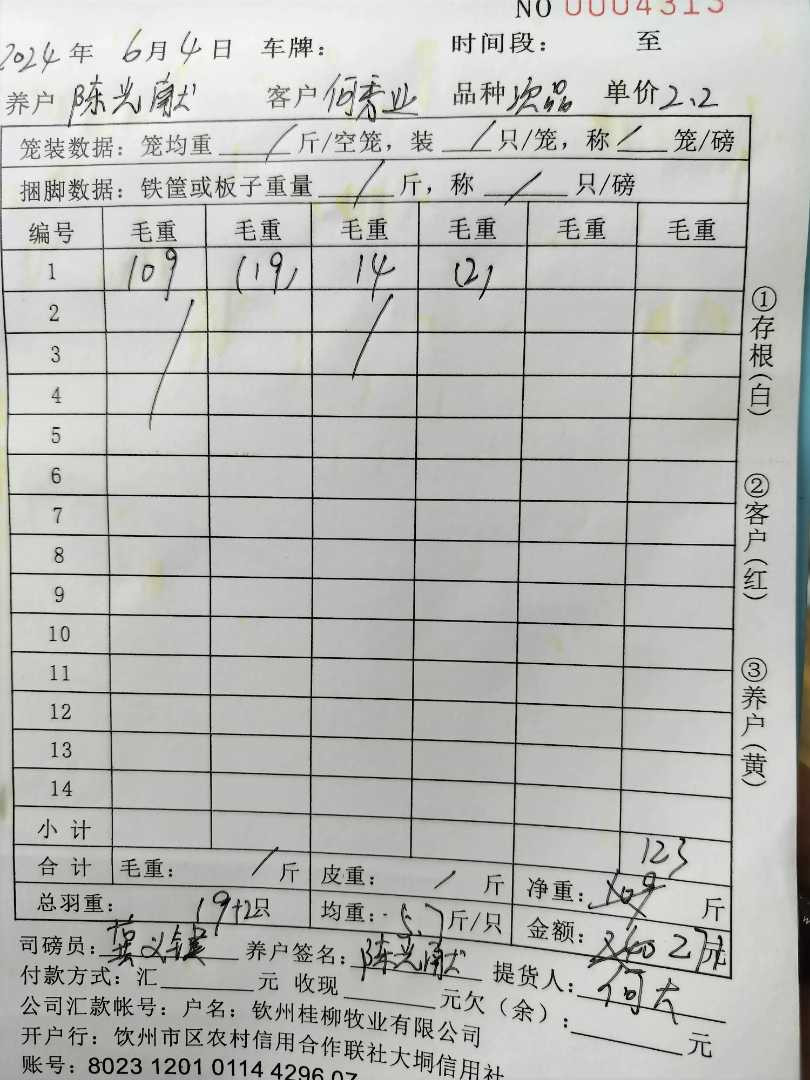 NO 0004313
2024年 6月4日 车牌： 时间段： 至
养户 陈光献 客户 何秀业 品种 次品 单价 2.2
笼装数据：笼均重 / 斤/空笼，装 / 只/笼，称 / 笼/磅
捆脚数据：铁筐或板子重量 / 斤，称 / 只/磅
编号 毛重 毛重 毛重 毛重 毛重 毛重
1 109 (19) 14 (2)
2
3
4
5
6
7
8
9
10
11
12
13
14
小计 123
合计 毛重： / 斤 皮重： / 斤 净重：109 斤
总羽重： 19+2只 均重：5.7斤/只 金额：240 271元
司磅员： 养户签名：陈光献 提货人：何大
付款方式：汇 元 收现 元欠（余）： 元
公司汇款帐号：户名：钦州桂柳牧业有限公司
开户行：饮州市区农村信用合作联社大垌信用社
账号：8023 1201 0114 4296 07
①存根(白)
②客户(红)
③养户(黄)